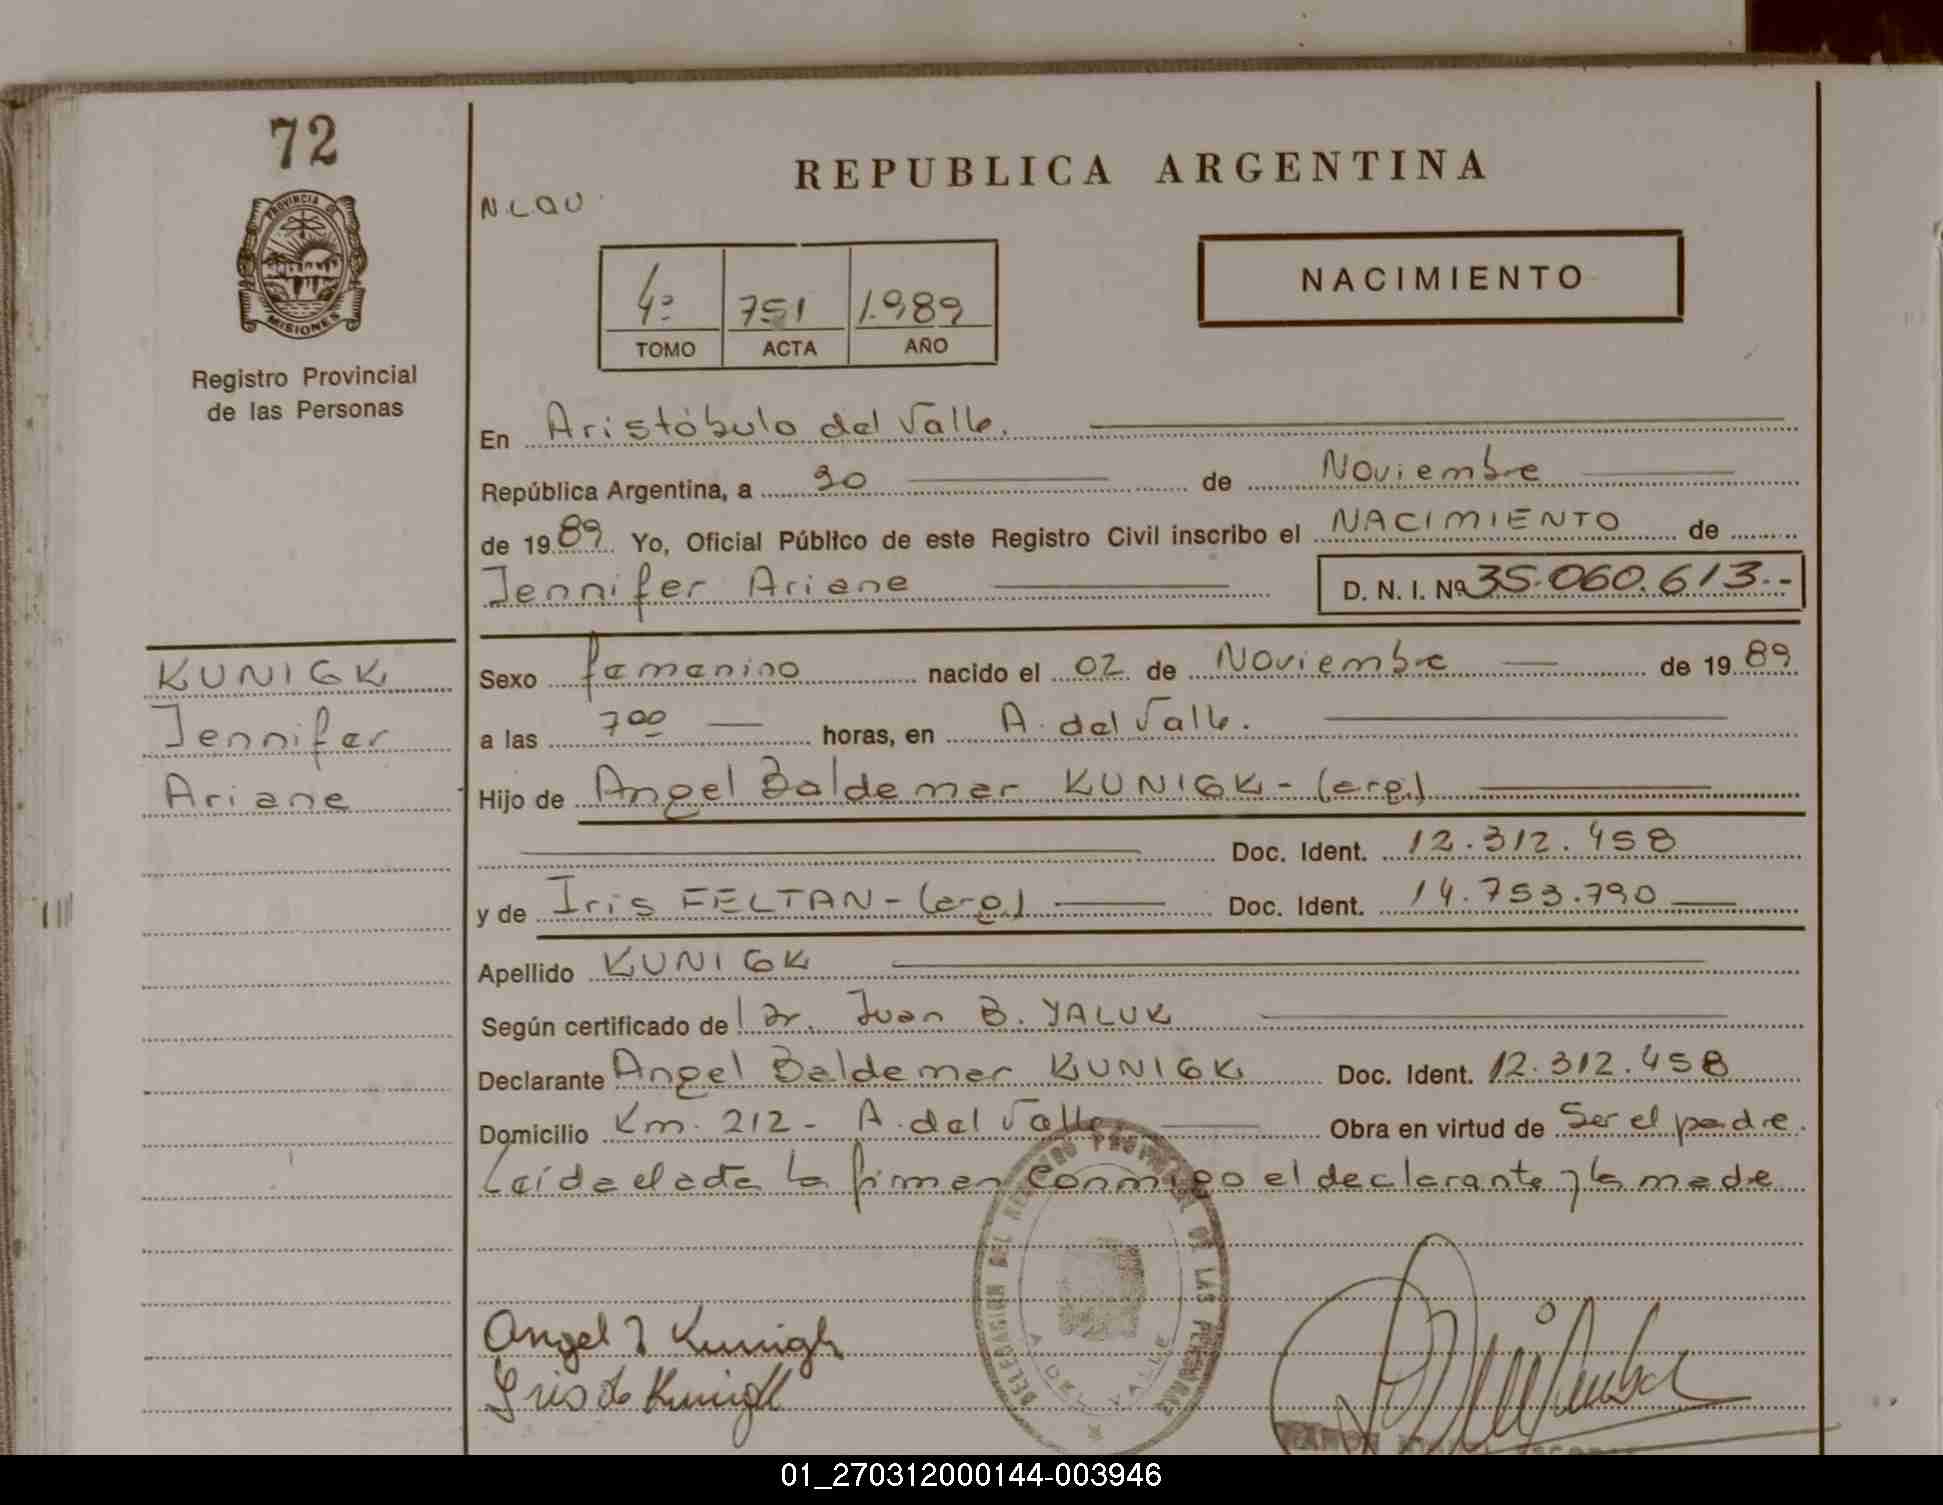 72
PROVINCIA DE
MISIONES
Registro Provincial
de las Personas
KUNIGK
Jennifer
Ariane
REPUBLICA ARGENTINA
N.L.QU.
4º 751 1.989
TOMO ACTA AÑO
NACIMIENTO
En Aristóbulo del Valle.
República Argentina, a 30 de Noviembre
de 1989 Yo, Oficial Público de este Registro Civil inscribo el NACIMIENTO de
Jennifer Ariane D. N. I. Nº 35.060.613.-
Sexo femenino nacido el 02 de Noviembre de 1989
a las 7 00 horas, en A. del Valle.
Hijo de Angel Baldemar KUNIGK - (arg.)
Doc. Ident. 12.312.458
y de Iris FELTAN - (arg.) Doc. Ident. 14.753.790
Apellido KUNIGK
Según certificado de Dr. Juan B. YALUK
Declarante Angel Baldemar KUNIGK Doc. Ident. 12.312.458
Domicilio Km. 212 - A. del Valle Obra en virtud de Ser el padre.
Leída el acta la firman conmigo el declarante y la madre
DELEGACION DEL REGISTRO PROVINCIAL DE LAS PERSONAS
A. DEL VALLE
Angel B Kunigk
Iris de Kunigk
01_270312000144-003946